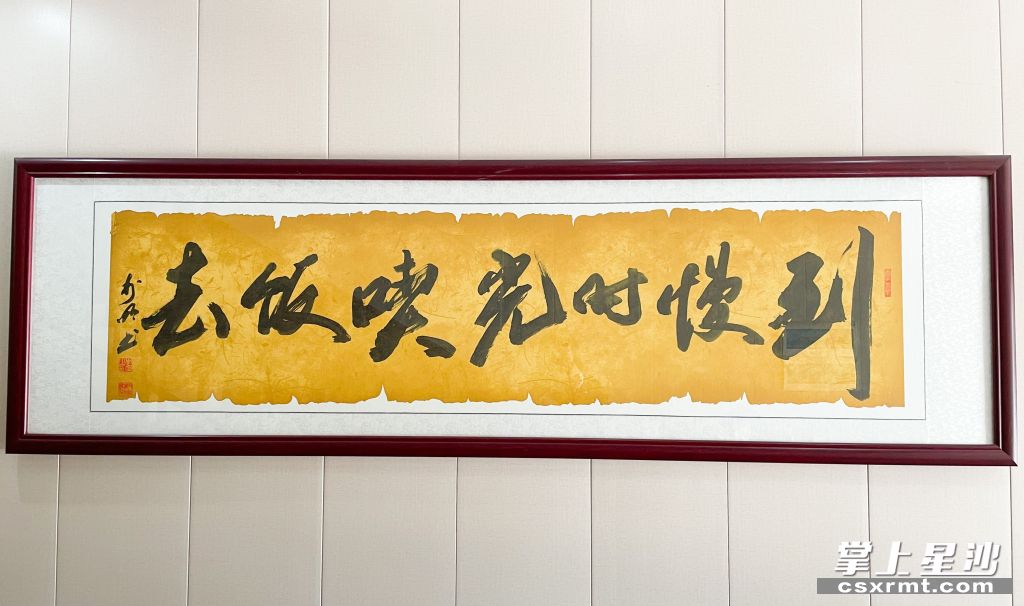 到慢时光喫饭去
掌上星沙
csxrmt.com